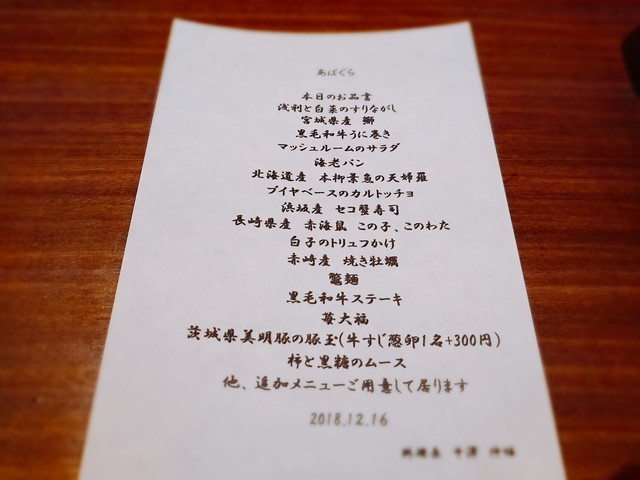 あばぐら
本日のお品書
浅利と白菜のすりながし
宮城県産 鰤
黒毛和牛うに巻き
マッシュルームのサラダ
海老パン
北海道産 本柳葉魚の天婦羅
ブイヤベースのカルトッチョ
浜坂産 セコ蟹寿司
長崎県産 赤海鼠 この子、このわた
白子のトリュフかけ
赤崎産 焼き牡蠣
鼈麺
黒毛和牛ステーキ
苺大福
茨城県美明豚の豚玉(牛すじ葱卵1名+300円)
柿と黒糖のムース
他、追加メニューご用意して居ります
2018.12.16
料理長